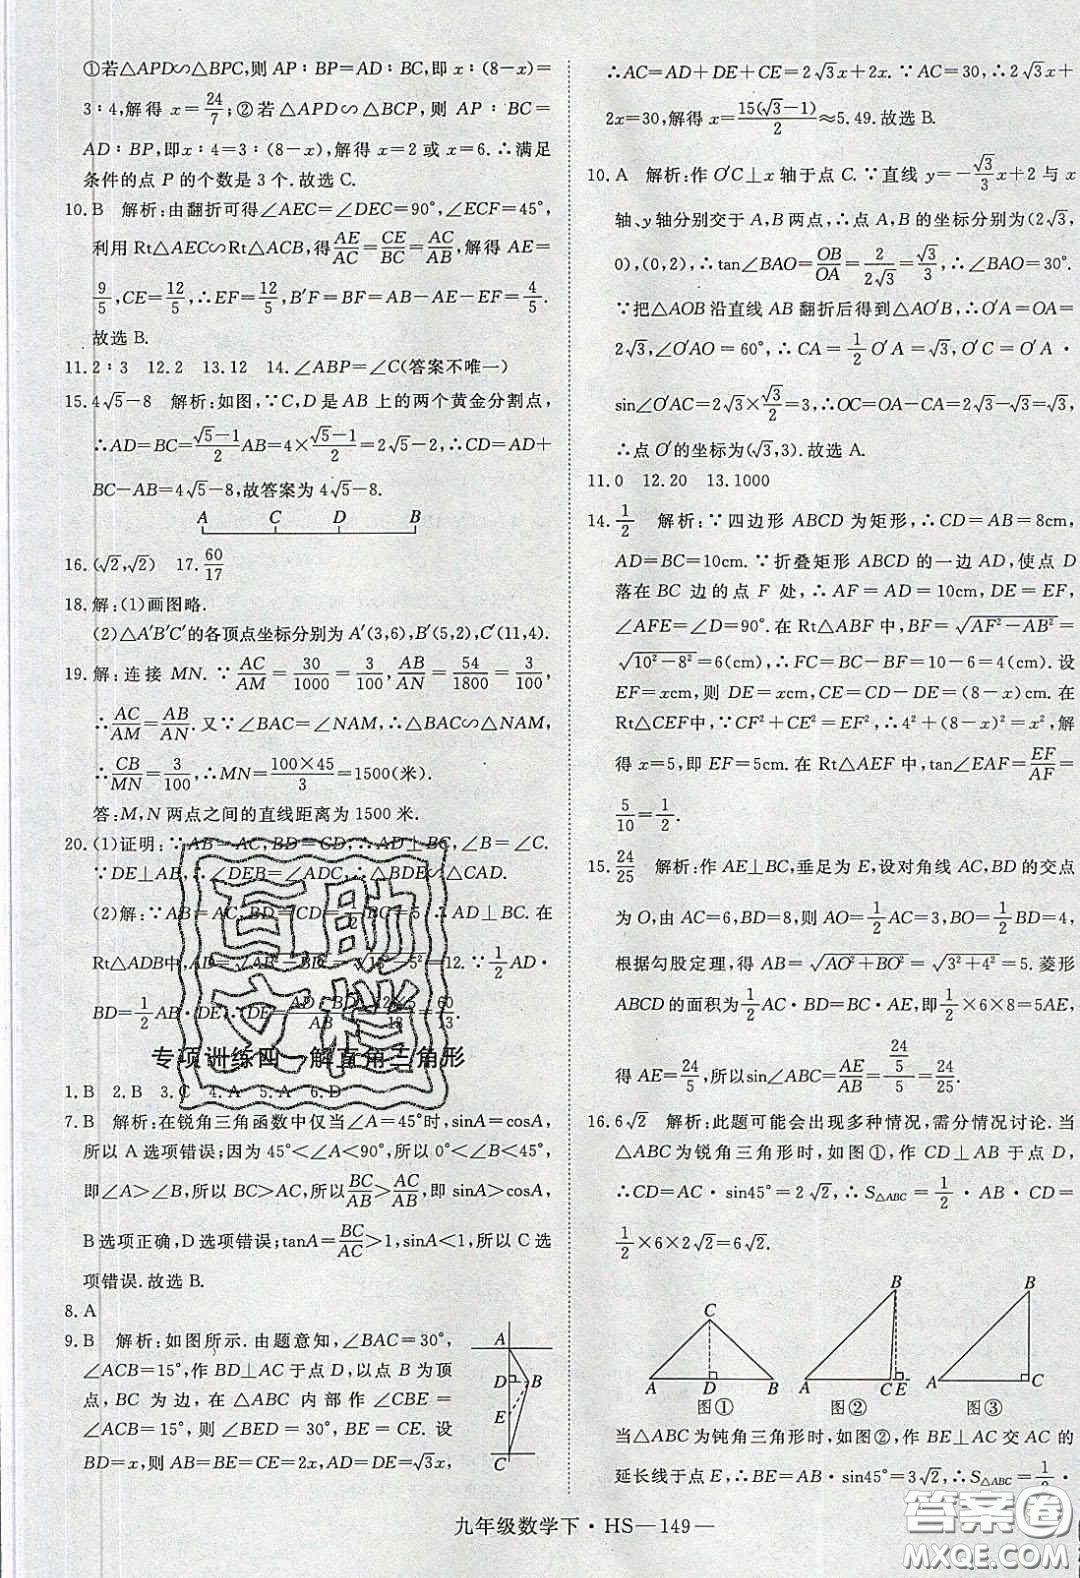 ①若△APD∽△BPC,则 AP∶BP=AD∶BC,即 x∶(8-x)=
3∶4,解得 x=24/7;②若△APD∽△BCP,则 AP∶BC=
AD∶BP,即x∶4=3∶(8-x),解得 x=2 或 x=6.∴满足
条件的点 P 的个数是 3 个.故选 C.
10.B 解析:由翻折可得∠AEC=∠DEC=90°,∠ECF=45°,
利用 Rt△AEC∽Rt△ACB,得AE/AC=CE/BC=AC/AB.解得 AE=
9/5,CE=12/5,∴EF=12/5,B′F=BF=AB-AE-EF=4/5.
故选 B.
11.2∶3 12.2 13.12 14.∠ABP=∠C(答案不唯一)
15.4√5-8 解析:如图,∵C,D 是 AB 上的两个黄金分割点,
∴AD=BC=(√5-1)/2AB=4×(√5-1)/2=2√5-2,∴CD=AD+
BC-AB=4√5-8,故答案为 4√5-8.
A C D B
16.(√2,√2) 17.60/17
18.解:(1)画图略.
(2)△A′B′C′的各顶点坐标分别为 A′(3,6),B′(5,2),C′(11,4).
19.解:连接 MN.∵AC/AM=30/1000=3/100,AB/AN=54/1800=3/100,
∴AC/AM=AB/AN.又∵∠BAC=∠NAM,∴△BAC∽△NAM,
∴CB/MN=3/100,∴MN=(100×45)/3=1500(米).
答:M,N 两点之间的直线距离为 1500 米.
20.(1)证明:∵AB=AC,BD=CD,∴AD⊥BC,∠B=∠C.
∵DE⊥AB,∴∠DEB=∠ADC,∴△BDE∽△CAD.
(2)解:∵AB=AC,BD=CD=1/2BC=5,∴AD⊥BC.在
Rt△ADB中,AD=√=12.∵1/2AD·
BD=1/2AB·DE,∴DE=AD·BD/AB=12×5/13=60/13.
互助
文档
专项训练四 解直角三角形
1.B 2.B 3.C 4.A 5.A 6.D
7.B 解析:在锐角三角函数中仅当∠A=45°时,sinA=cosA,
所以 A 选项错误;因为 45°<∠A<90°,所以0°<∠B<45°,
即∠A>∠B,所以 BC>AC,所以BC/AB>AC/AB,即 sinA>cosA,
B选项正确,D选项错误;tanA=BC/AC>1,sinA<1,所以 C 选
项错误.故选 B.
8.A
9.B 解析:如图所示.由题意知,∠BAC=30°,
∠ACB=15°,作 BD⊥AC 于点 D,以点 B 为顶
点,BC 为边,在△ABC 内部作∠CBE=
∠ACB=15°,则∠BED=30°,BE=CE.设
BD=x,则 AB=BE=CE=2x,AD=DE=√3x,
A
D B
E
C
∴AC=AD+DE+CE=2√3x+2x.∵AC=30,∴2√3x+
2x=30,解得 x=15(√3-1)/2≈5.49.故选 B.
10.A 解析:作 O′C⊥x 轴于点 C.∵直线 y=-√3/3x+2 与 x
轴、y轴分别交于 A,B 两点,∴点 A,B 的坐标分别为(2√3,
0),(0,2),∴tan∠BAO=OB/OA=2/2√3=√3/3,∴∠BAO=30°.
∵把△AOB 沿直线 AB 翻折后得到△AO′B,∴O′A=OA=
2√3,∠O′AO=60°,∴CA=1/2O′A=√3,O′C=O′A·
sin∠O′AC=2√3×√3/2=3,∴OC=OA-CA=2√3-√3=√3,
∴点 O′的坐标为(√3,3).故选 A.
11.0 12.20 13.1000
14.1/2 解析:∵四边形 ABCD 为矩形,∴CD=AB=8cm,
AD=BC=10cm.∵折叠矩形 ABCD 的一边 AD,使点 D
落在 BC 边的点 F 处,∴AF=AD=10cm,DE=EF,
∠AFE=∠D=90°.在 Rt△ABF 中,BF=√(AF²-AB²)=
√(10²-8²)=6(cm),∴FC=BC-BF=10-6=4(cm).设
EF=xcm,则 DE=xcm,CE=CD-DE=(8-x)cm.在
Rt△CEF中,∵CF²+CE²=EF²,∴4²+(8-x)²=x²,解
得 x=5,即 EF=5cm.在 Rt△AEF 中,tan∠EAF=EF/AF=
5/10=1/2.
15.24/25 解析:作 AE⊥BC,垂足为E,设对角线 AC,BD 的交点
为 O,由AC=6,BD=8,则 AO=1/2AC=3,BO=1/2BD=4,
根据勾股定理,得 AB=√(AO²+BO²)=√(3²+4²)=5.菱形
ABCD 的面积为1/2AC·BD=BC·AE,即1/2×6×8=5AE,
得 AE=24/5,所以sin∠ABC=AE/AB=(24/5)/5=24/25.
16.6√2 解析:此题可能会出现多种情况,需分情况讨论.当
△ABC为锐角三角形时,如图①,作 CD⊥AB 于点 D,
∴CD=AC·sin45°=2√2,∴S△ABC=1/2·AB·CD=
1/2×6×2√2=6√2.
C
A D B
图①
B
A C E
图②
B
A C
图③
当△ABC为钝角三角形时,如图②,作 BE⊥AC 交 AC 的
延长线于点 E,∴BE=AB·sin45°=3√2,∴S△ABC=1/2·
九年级数学下·HS—149—
答案圈
MXQE.COM